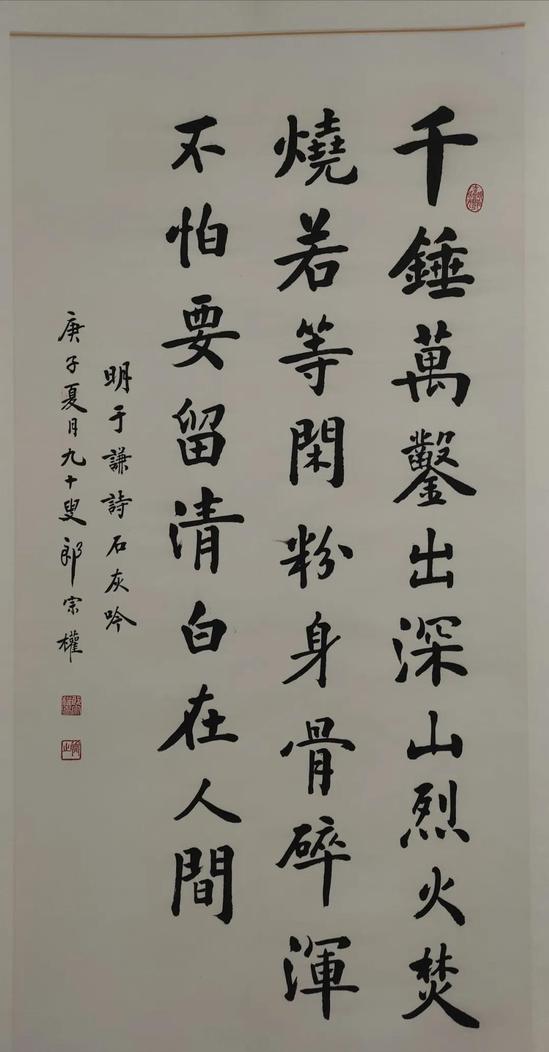 千錘萬鑿出深山烈火焚
燒若等閑粉身骨碎渾
不怕要留清白在人間
明于謙詩石灰吟
庚子夏月九十叟郎宗權